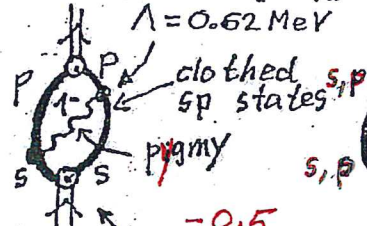 Λ = 0.62 MeV
P P clothed
1- sp states s,p
pygmy
s s s,p
-0.5